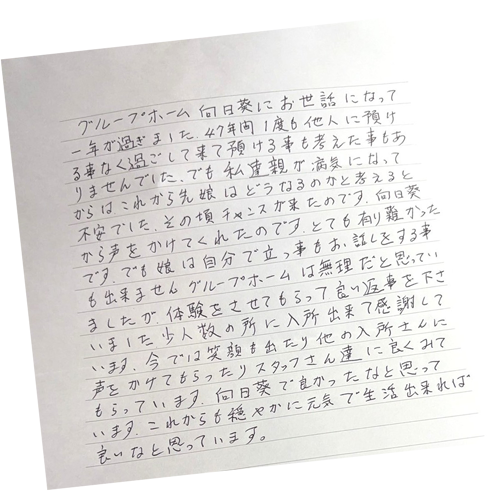 グループホーム向日葵にお世話になって
一年が過ぎました。47年間1度も他人に預け
る事なく過ごして来て預ける事も考えた事もあ
りませんでした。でも私達親が病気になって
からはこれから先娘はどうなるのかと考えると
不安でした。その頃チャンスが来たのです。向日葵
から声をかけてくれたのです。とても有り難かった
です。でも娘は自分で立つ事もお話しをする事
も出来ませんグループホームは無理だと思ってい
ましたが、体験をさせてもらって良い返事を下さ
いました少人数の所に入所出来て感謝して
います。今では笑顔も出たり他の入所さんに
声をかけてもらったりスタッフさん達に良くみて
もらっています。向日葵で良かったなと思って
います。これからも穏やかに元気で生活出来れば
良いなと思っています。